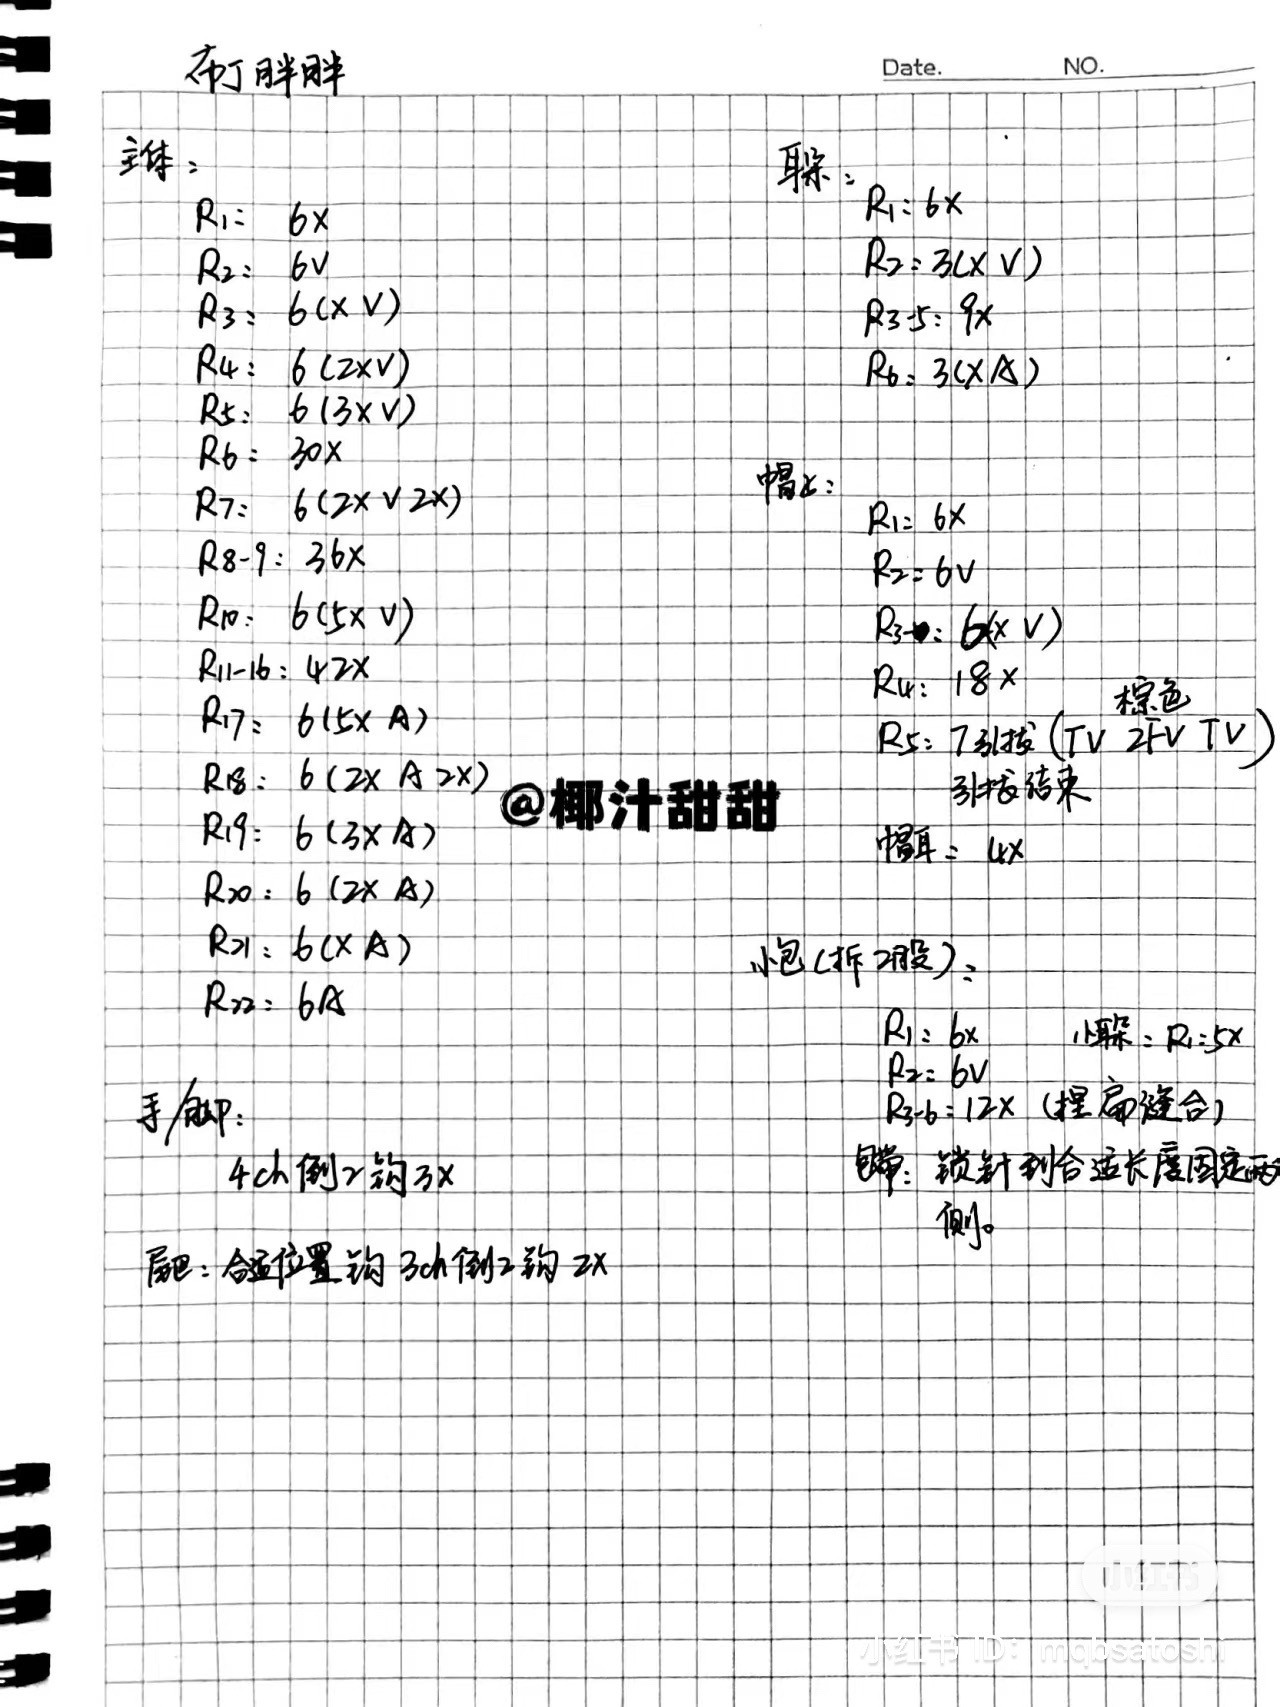 布丁胖胖
Date. NO.
主体:
R1: 6X
R2: 6V
R3: 6(X V)
R4: 6(2XV)
R5: 6(3XV)
R6: 30X
R7: 6(2X V 2X)
R8-9: 36X
R10: 6(5X V)
R11-16: 42X
R17: 6(5X A)
R18: 6(2X A 2X)
R19: 6(3X A)
R20: 6(2X A)
R21: 6(X A)
R22: 6A
手/脚:
4ch倒2钩3X
尾巴: 合适位置钩 3ch倒2钩 2X
耳朵:
R1: 6X
R2: 3(X V)
R3-5: 9X
R6: 3(X A)
帽子:
R1: 6X
R2: 6V
R3: 6(X V)
R4: 18X
棕色
R5: 7引拔(TV 2FV TV)
引拔结束
帽耳: 4X
小包(拆2股):
R1: 6X 小耳朵: R1:5X
R2: 6V
R3-6: 12X (捏扁缝合)
包带: 锁针到合适长度固定两
侧。
@椰汁甜甜
小红书
小红书 ID: mqbsatoshi